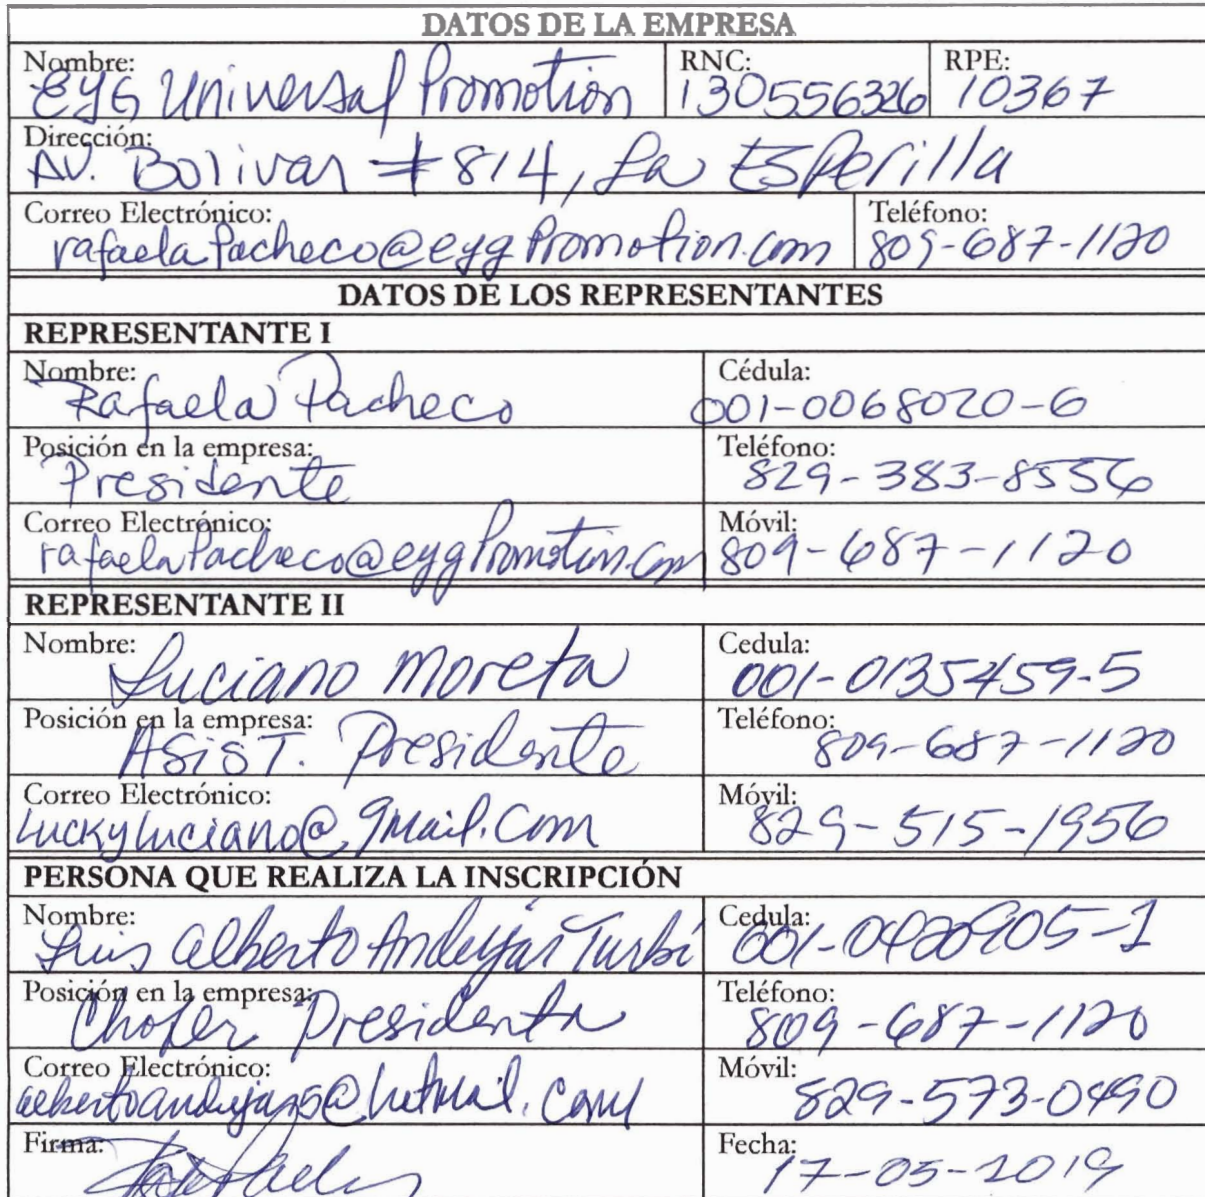 DATOS DE LA EMPRESA
Nombre: EYG Universal Promotion RNC: 130556326 RPE: 10367
Dirección: AV. Bolivar #814, La Esperilla
Correo Electrónico: rafaelaPacheco@eygPromotion.com Teléfono: 809-687-1120
DATOS DE LOS REPRESENTANTES
REPRESENTANTE I
Nombre: Rafaela Pacheco Cédula: 001-0068020-6
Posición en la empresa: Presidente Teléfono: 829-383-8556
Correo Electrónico: rafaelaPacheco@eygPromotion.com Móvil: 809-687-1120
REPRESENTANTE II
Nombre: Luciano Moreta Cedula: 001-0135459-5
Posición en la empresa: Asist. Presidente Teléfono: 809-687-1120
Correo Electrónico: luckyluciano@gmail.com Móvil: 829-515-1956
PERSONA QUE REALIZA LA INSCRIPCIÓN
Nombre: Luis Alberto Andujar Turbí Cedula: 001-0420905-1
Posición en la empresa: Chofer Presidenta Teléfono: 809-687-1120
Correo Electrónico: Móvil: 829-573-0490
Firma: Fecha: 17-05-2019